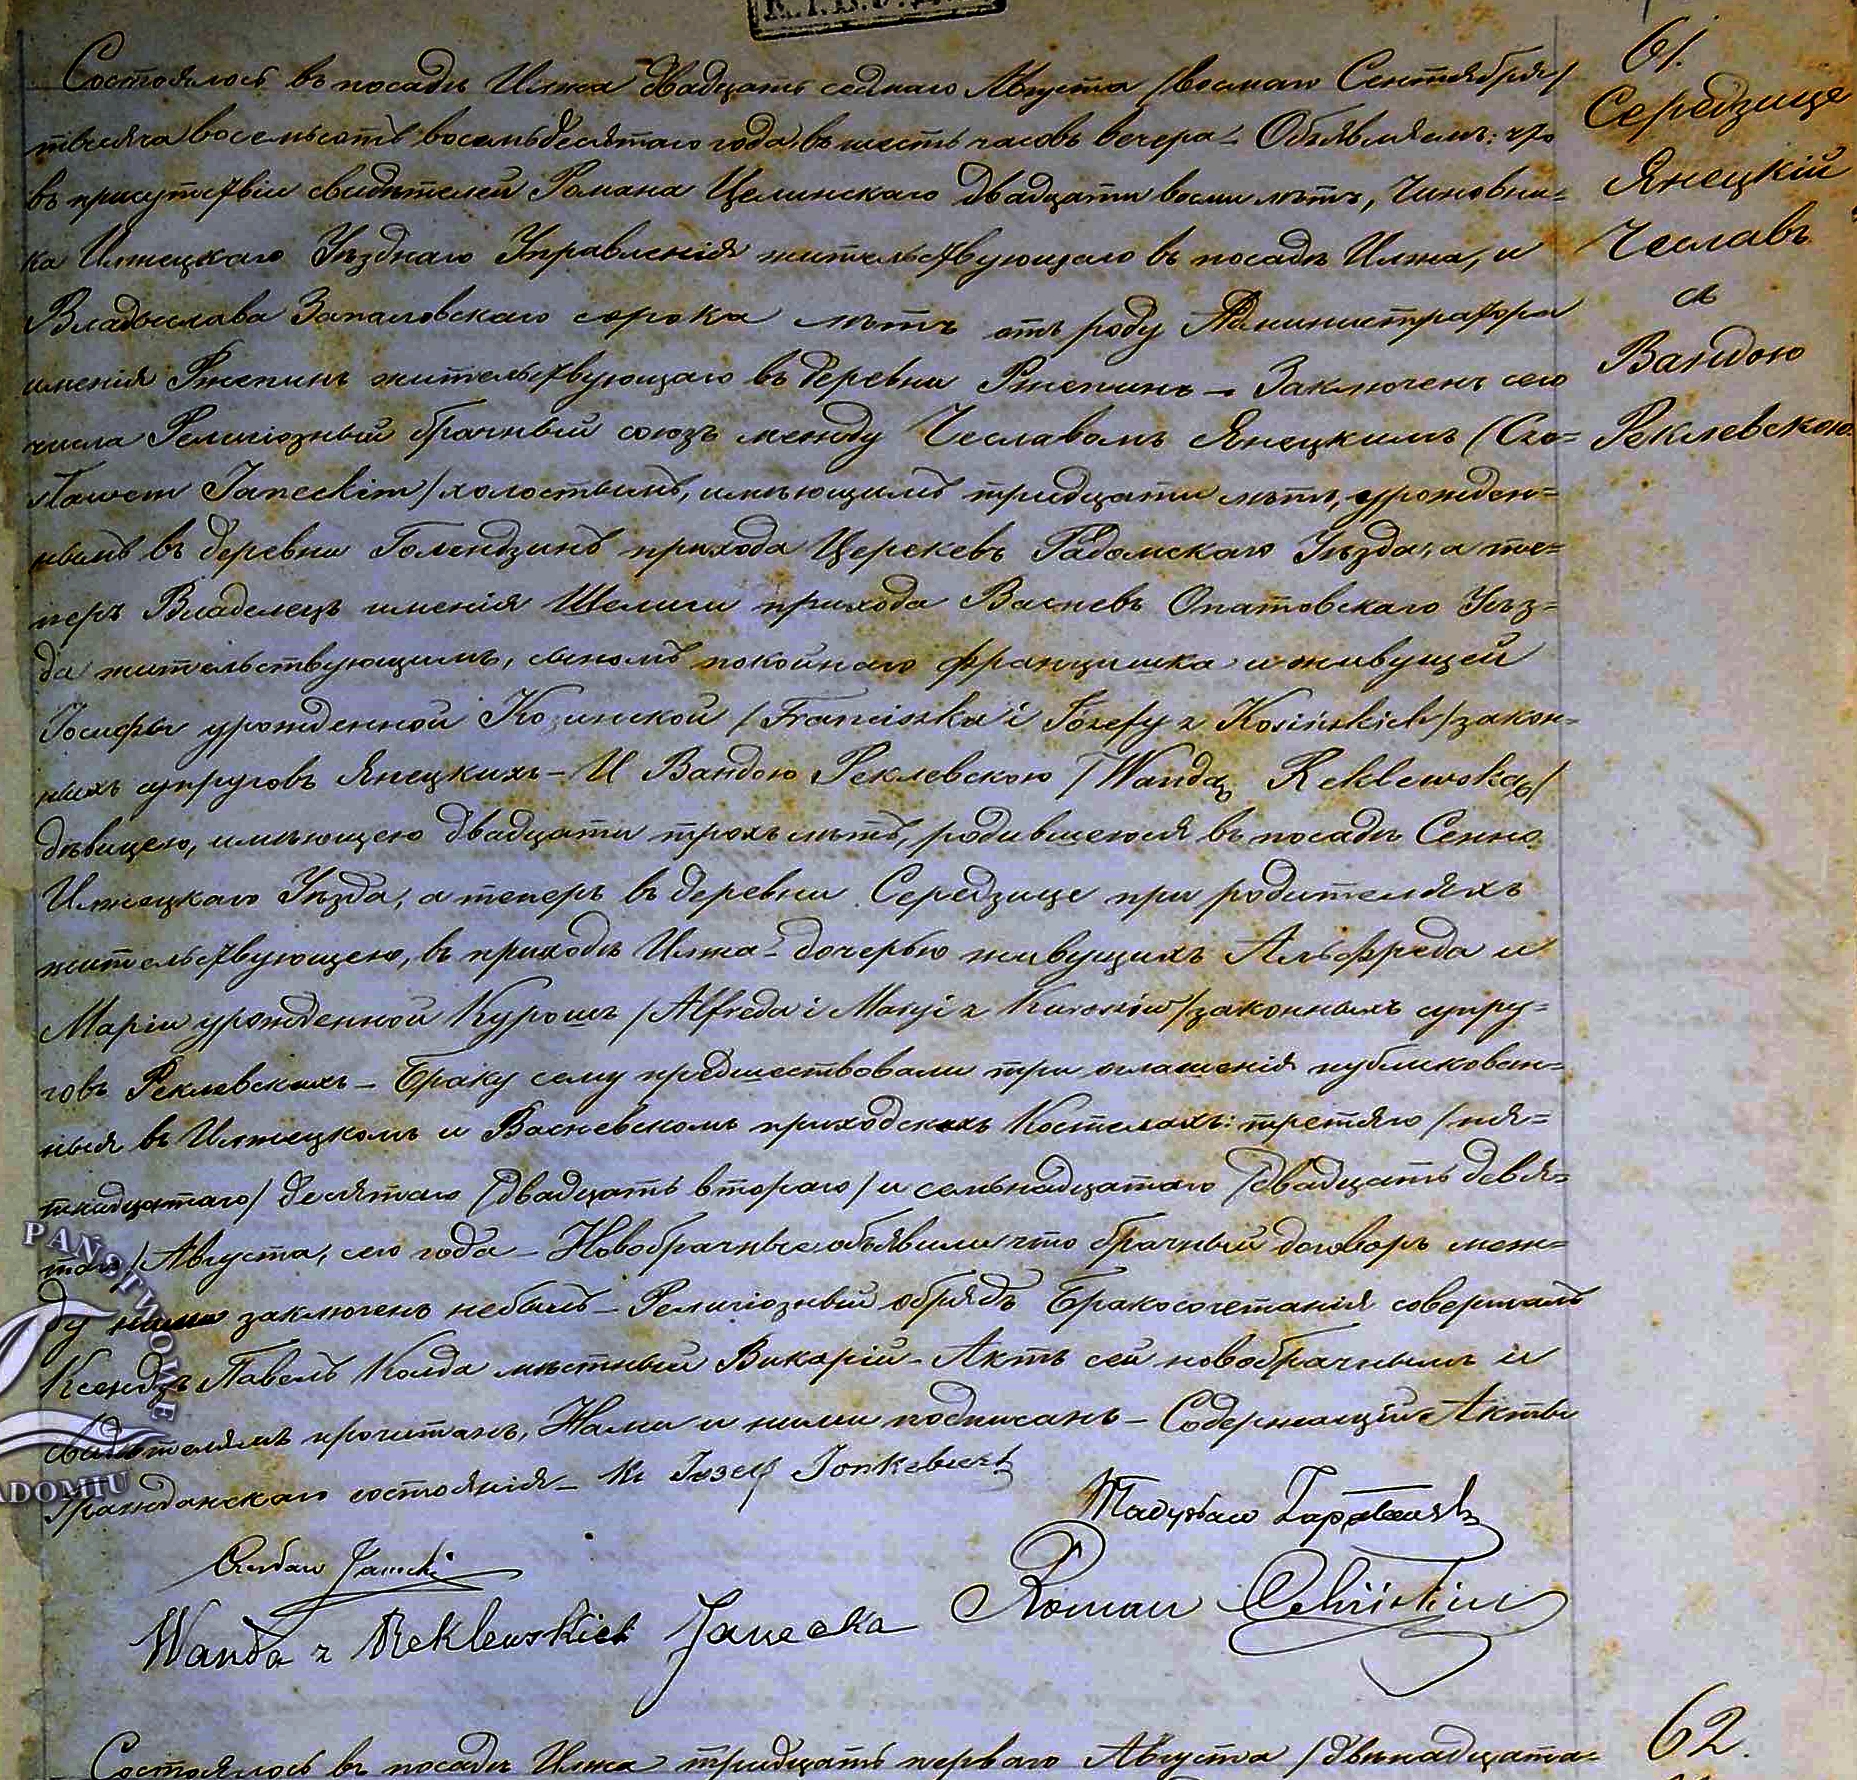 61.
Середзице
Янецкій
Чеславъ
съ
Вандою
Реклевскою
Состоялось въ посадѣ Илжа двадцать седмаго Августа /восмаго Сентября/
тысяча восемьсотъ восемьдесятаго года въ шесть часовъ вечера – Объявляемъ: что
въ присутствіи свидѣтелей Романа Целинскаго двадцати восми лѣтъ, Чиновни=
ка Илжецкаго Уѣзднаго Управленія жительствующаго въ посадѣ Илжа, и
Владыслава Запаловскаго сорока лѣтъ отъ роду Администратора
имѣнія Ржепинъ жительствующаго въ деревни Ржепинъ – Заключенъ сего
числа Религіозный брачный союзъ между Чеславомъ Янецкимъ (Cze=
sławem Janeckim/ холостымъ, имѣющимъ тридцати лѣтъ, урожден=
нымъ въ деревни Голендзинъ прихода Церекевъ Радомскаго Уѣзда, а те=
перъ Владелецъ имѣнія Шелиги прихода Васневъ Опатовскаго Уѣз=
да жительствующимъ, сыномъ покойнаго Францишка и живущей
Іосифы урожденной Козинской /Franciszka i Józefy z Kosińskich/ закон=
ныхъ супруговъ Янецкихъ – И Вандою Реклевскою /Wandą Reklewską/
дѣвицею, имѣющею двадцати трохъ лѣтъ, родившеюся въ посадѣ Сенно
Илжецкаго Уѣзда, а теперъ въ деревни Середзице при родителяхъ
жительствующею, въ приходѣ Илжа – дочерью живущихъ Альфреда и
Маріи урожденной Курошъ /Alfreda i Maryi z Kuroszów/ законныхъ супру=
говъ Реклевскихъ – Браку сему предшествовали три оглашенія публикован=
ныя въ Илжецкомъ и Васневскомъ приходскихъ Костелахъ: третяго /пя=
тнадцатаго/ десятаго /двадцать втораго/ и семьнадцатаго /двадцать девя=
таго/ Августа, сего года – Новобрачные объявили что брачный договоръ меж=
ду ними заключенъ небылъ – Религіозный обрядъ Бракосочетанія совершалъ
Ксендзъ Павелъ Колда мѣстный Викарій – Актъ сей новобрачнымъ и
свидѣтелямъ прочитанъ, Нами и ними подписанъ – Содержащій Акты
Гражданскаго состоянія – Ks Józef
Władysław Zapałowski
Czesław Janecki
Roman
Wanda z Reklewskich Janecka
62.
Состоялось въ посадѣ Илжа тридцать перваго Августа /двѣнадцата=
PAŃSTWOWE
RADOMIU